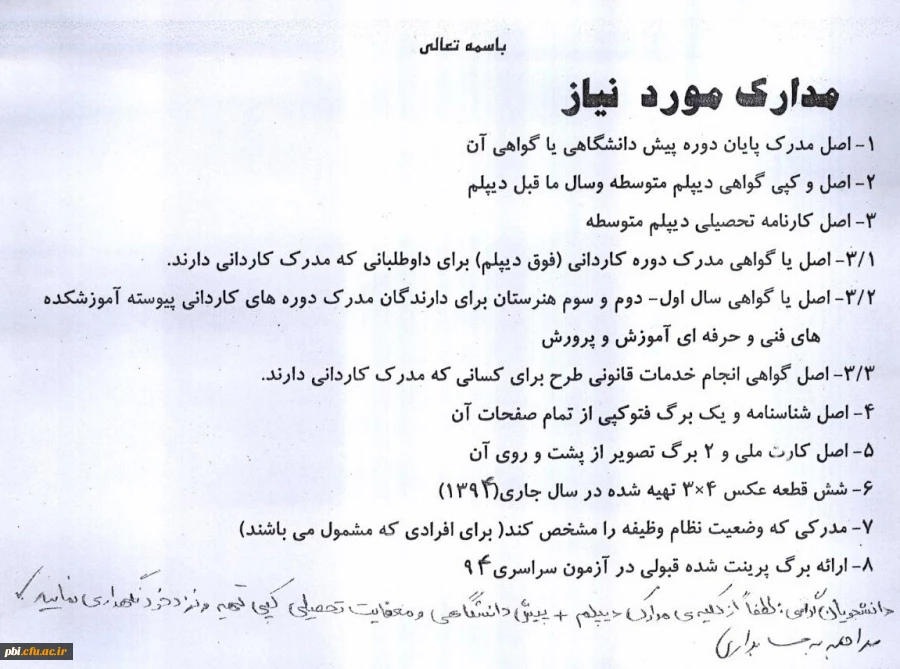 باسمه تعالی
مدارک مورد نیاز
۱- اصل مدرک پایان دوره پیش دانشگاهی یا گواهی آن
۲- اصل و کپی گواهی دیپلم متوسطه وسال ما قبل دیپلم
۳- اصل کارنامه تحصیلی دیپلم متوسطه
۳/۱- اصل یا گواهی مدرک دوره کاردانی (فوق دیپلم) برای داوطلبانی که مدرک کاردانی دارند.
۳/۲- اصل یا گواهی سال اول- دوم و سوم هنرستان برای دارندگان مدرک دوره های کاردانی پیوسته آموزشکده
های فنی و حرفه ای آموزش و پرورش
۳/۳- اصل گواهی انجام خدمات قانونی طرح برای کسانی که مدرک کاردانی دارند.
۴- اصل شناسنامه و یک برگ فتوکپی از تمام صفحات آن
۵- اصل کارت ملی و ۲ برگ تصویر از پشت و روی آن
۶- شش قطعه عکس ۴×۳ تهیه شده در سال جاری(۱۳۹۴)
۷- مدرکی که وضعیت نظام وظیفه را مشخص کند( برای افرادی که مشمول می باشند)
۸- ارائه برگ پرینت شده قبولی در آزمون سراسری ۹۴
دانشجویان گرامی: لطفاً از کلیه‌ی مدارک دیپلم + پیش دانشگاهی و معافیت تحصیلی کپی تهیه و نزد خود نگهداری نمایید
pbi.cfu.ac.ir